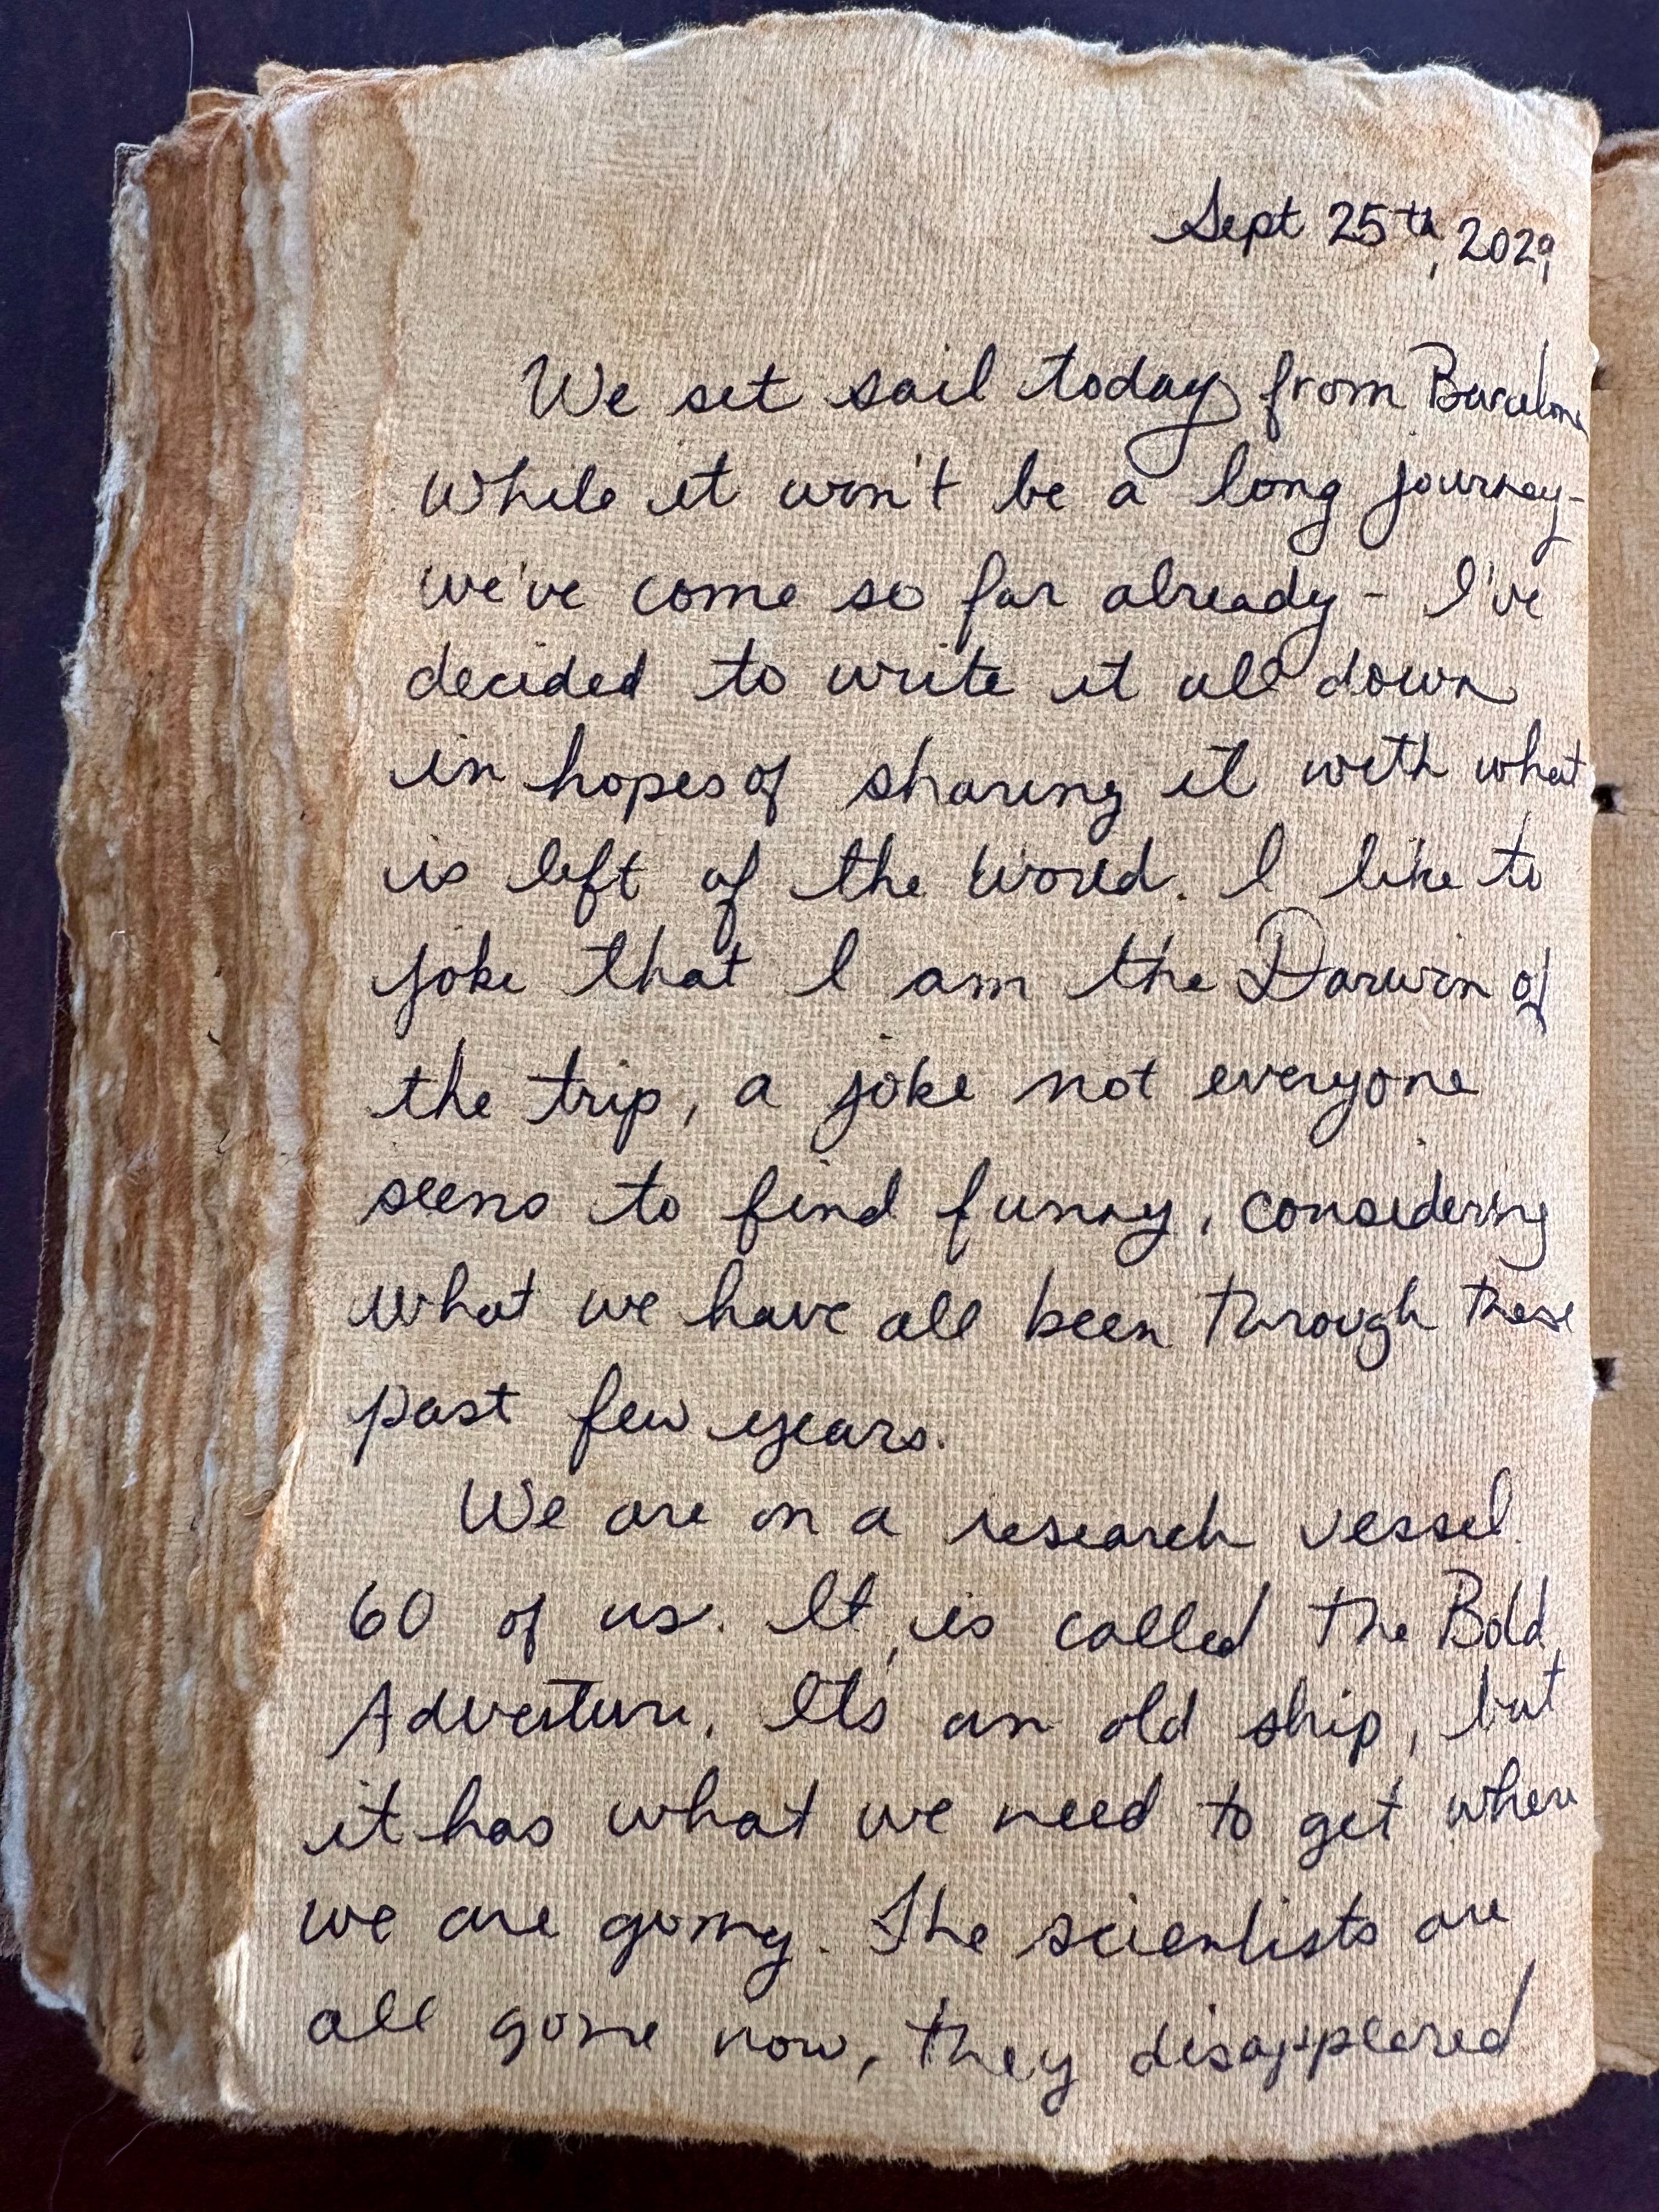 Sept 25th, 2029
We set sail today from Barcelona
While it won't be a long journey-
we've come so far already - I've
decided to write it all down
in hopes of sharing it with what
is left of the world. I like to
joke that I am the Darwin of
the trip, a joke not everyone
seems to find funny, considering
what we have all been through these
past few years.
We are on a research vessel.
60 of us. It is called the Bold
Adventure. It's an old ship, but
it has what we need to get where
we are going. The scientists are
all gone now, they disappeared